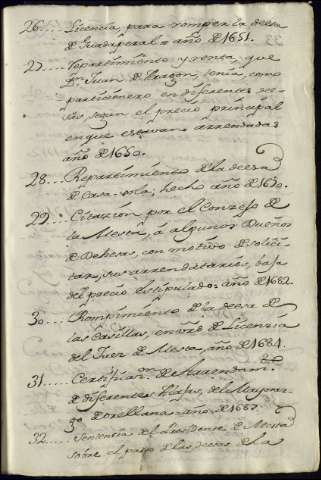 26.... Licencia para romper la desa
de Guadaperal = año de 1651.
27.... Repartimiento y renta que
Dn. Juan de Aragon, tenia, como
partizionero en diferentes de-
sas, segun el precio principal
en que estavan arrendadas
año de 1650.
28.... Repartimiento de la deesa
de Casa-sola; hecho año de 1650.
29.... Citazion por el Conzejo de
la Mesta, á algunos Dueños
de Dehesas, con motivo de solici-
tar, sus arrendatarios, baja
del precio estipulado: año de 1682.
30.... Rompimiento de la deesa de
las Casillas, en virtd. de Licencia
del Juez de Mesta, año de 1684.
31.... Certificon. de Arrendamtos.
de diferentes hiervas, del Marques
de Orellana = año de 1687.
32.... Sentencia del Presidente de Mesta
sobre el pasto de las deesas de la